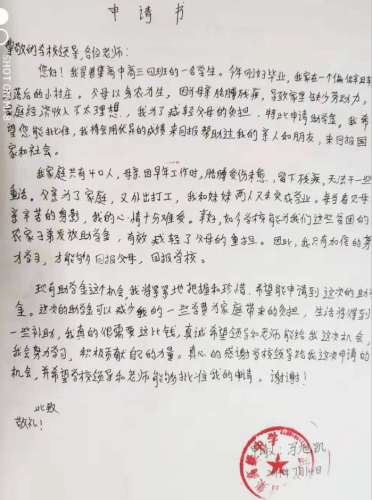 申请书
尊敬的学校领导,各位老师:
您好!我是 高中高三 班的一名学生。今年刚好毕业,我家在一个偏僻
落后的小村庄。父母以务农为生,因为母亲胳膊残疾,导致家里缺少劳动力,
家庭经济收入不太理想,我为了减轻父母的负担,特此申请助学金。我希
望您能批准,我将会用优异的成绩来回报帮助过我的亲人和朋友,来回报国
家和社会。
我家庭共有4口人,母亲因早年工作时,胳膊受伤 ,留下残疾,无法干一些
重活。父亲为了家庭,又外出打工,我和妹妹两人又未完成学业。每当看见父母
辛苦的身影,我的心情十分难受。 ,如今学校能为我们这些贫困的
农家子弟发放助学金,有效减轻了父母的重担。因此,我只有加倍的努
力学习,才能够回报父母,回报学校。
现有助学金这个机会,我将牢牢地把握和珍惜,希望能申请到这次的助学
金。这次的助学金可以减少我的一些学费为家庭带来的负担,生活将得到
一些补助,我真的很需要这比钱,真诚希望领导和老师能给我这次机会,
我会努力学习,积极贡献自己的力量。真心的感谢学校领导给我这次申请的
机会,并希望学校领导和老师能够批准我的申请。谢谢!
此致
敬礼!
凯
月14日
SHOT ON